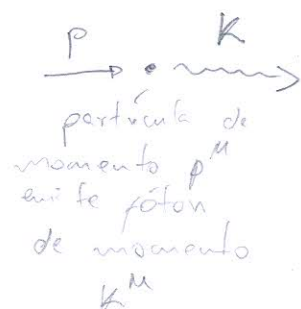 P K
partícula de
momento p^μ
emite fóton
de momento
K^μ